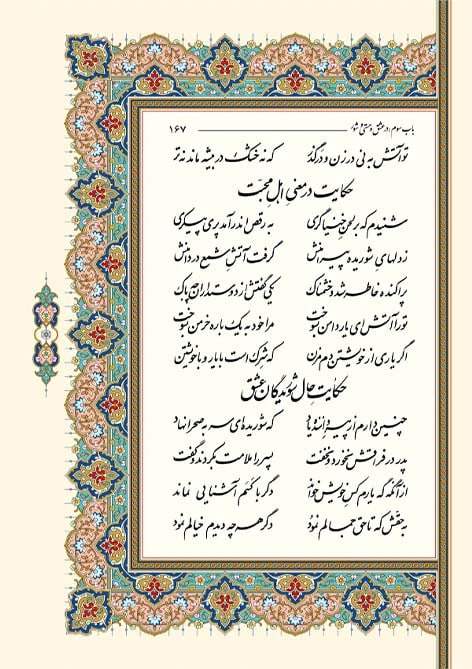 باب سوم: در عشق و مستی و شور ۱۶۷
تو آتش به نی در زن و در گذر که نه خشک در بیشه ماند نه تر
حکایت در معنی اهل محبت
شنیدم که بر لحن خنیاگری به رقص اندر آمد پری پیکری
ز دلهای شوریده پیرامنش گرفت آتش شمع در دامنش
پراکنده خاطر شد و خشمناک یکی گفتش از دوستداران چه باک
تو را آتش ای یار دامن بسوخت مرا خود به یک باره خرمن بسوخت
اگر یاری از خویشتن دم مزن که شرک است با یار و با خویشتن
حکایت حال شوریدگان عشق
چنین دارم از پیر داننده یاد که شوریده‌ای سر به صحرا نهاد
پدر در فراقش نخورد و نخفت پسر را ملامت بکردند و گفت
از آنگه که یارم کس خویش خواند دگر با کسم آشنایی نماند
به حقش که تا حق جمالم نمود دگر هر چه دیدم خیالم نمود